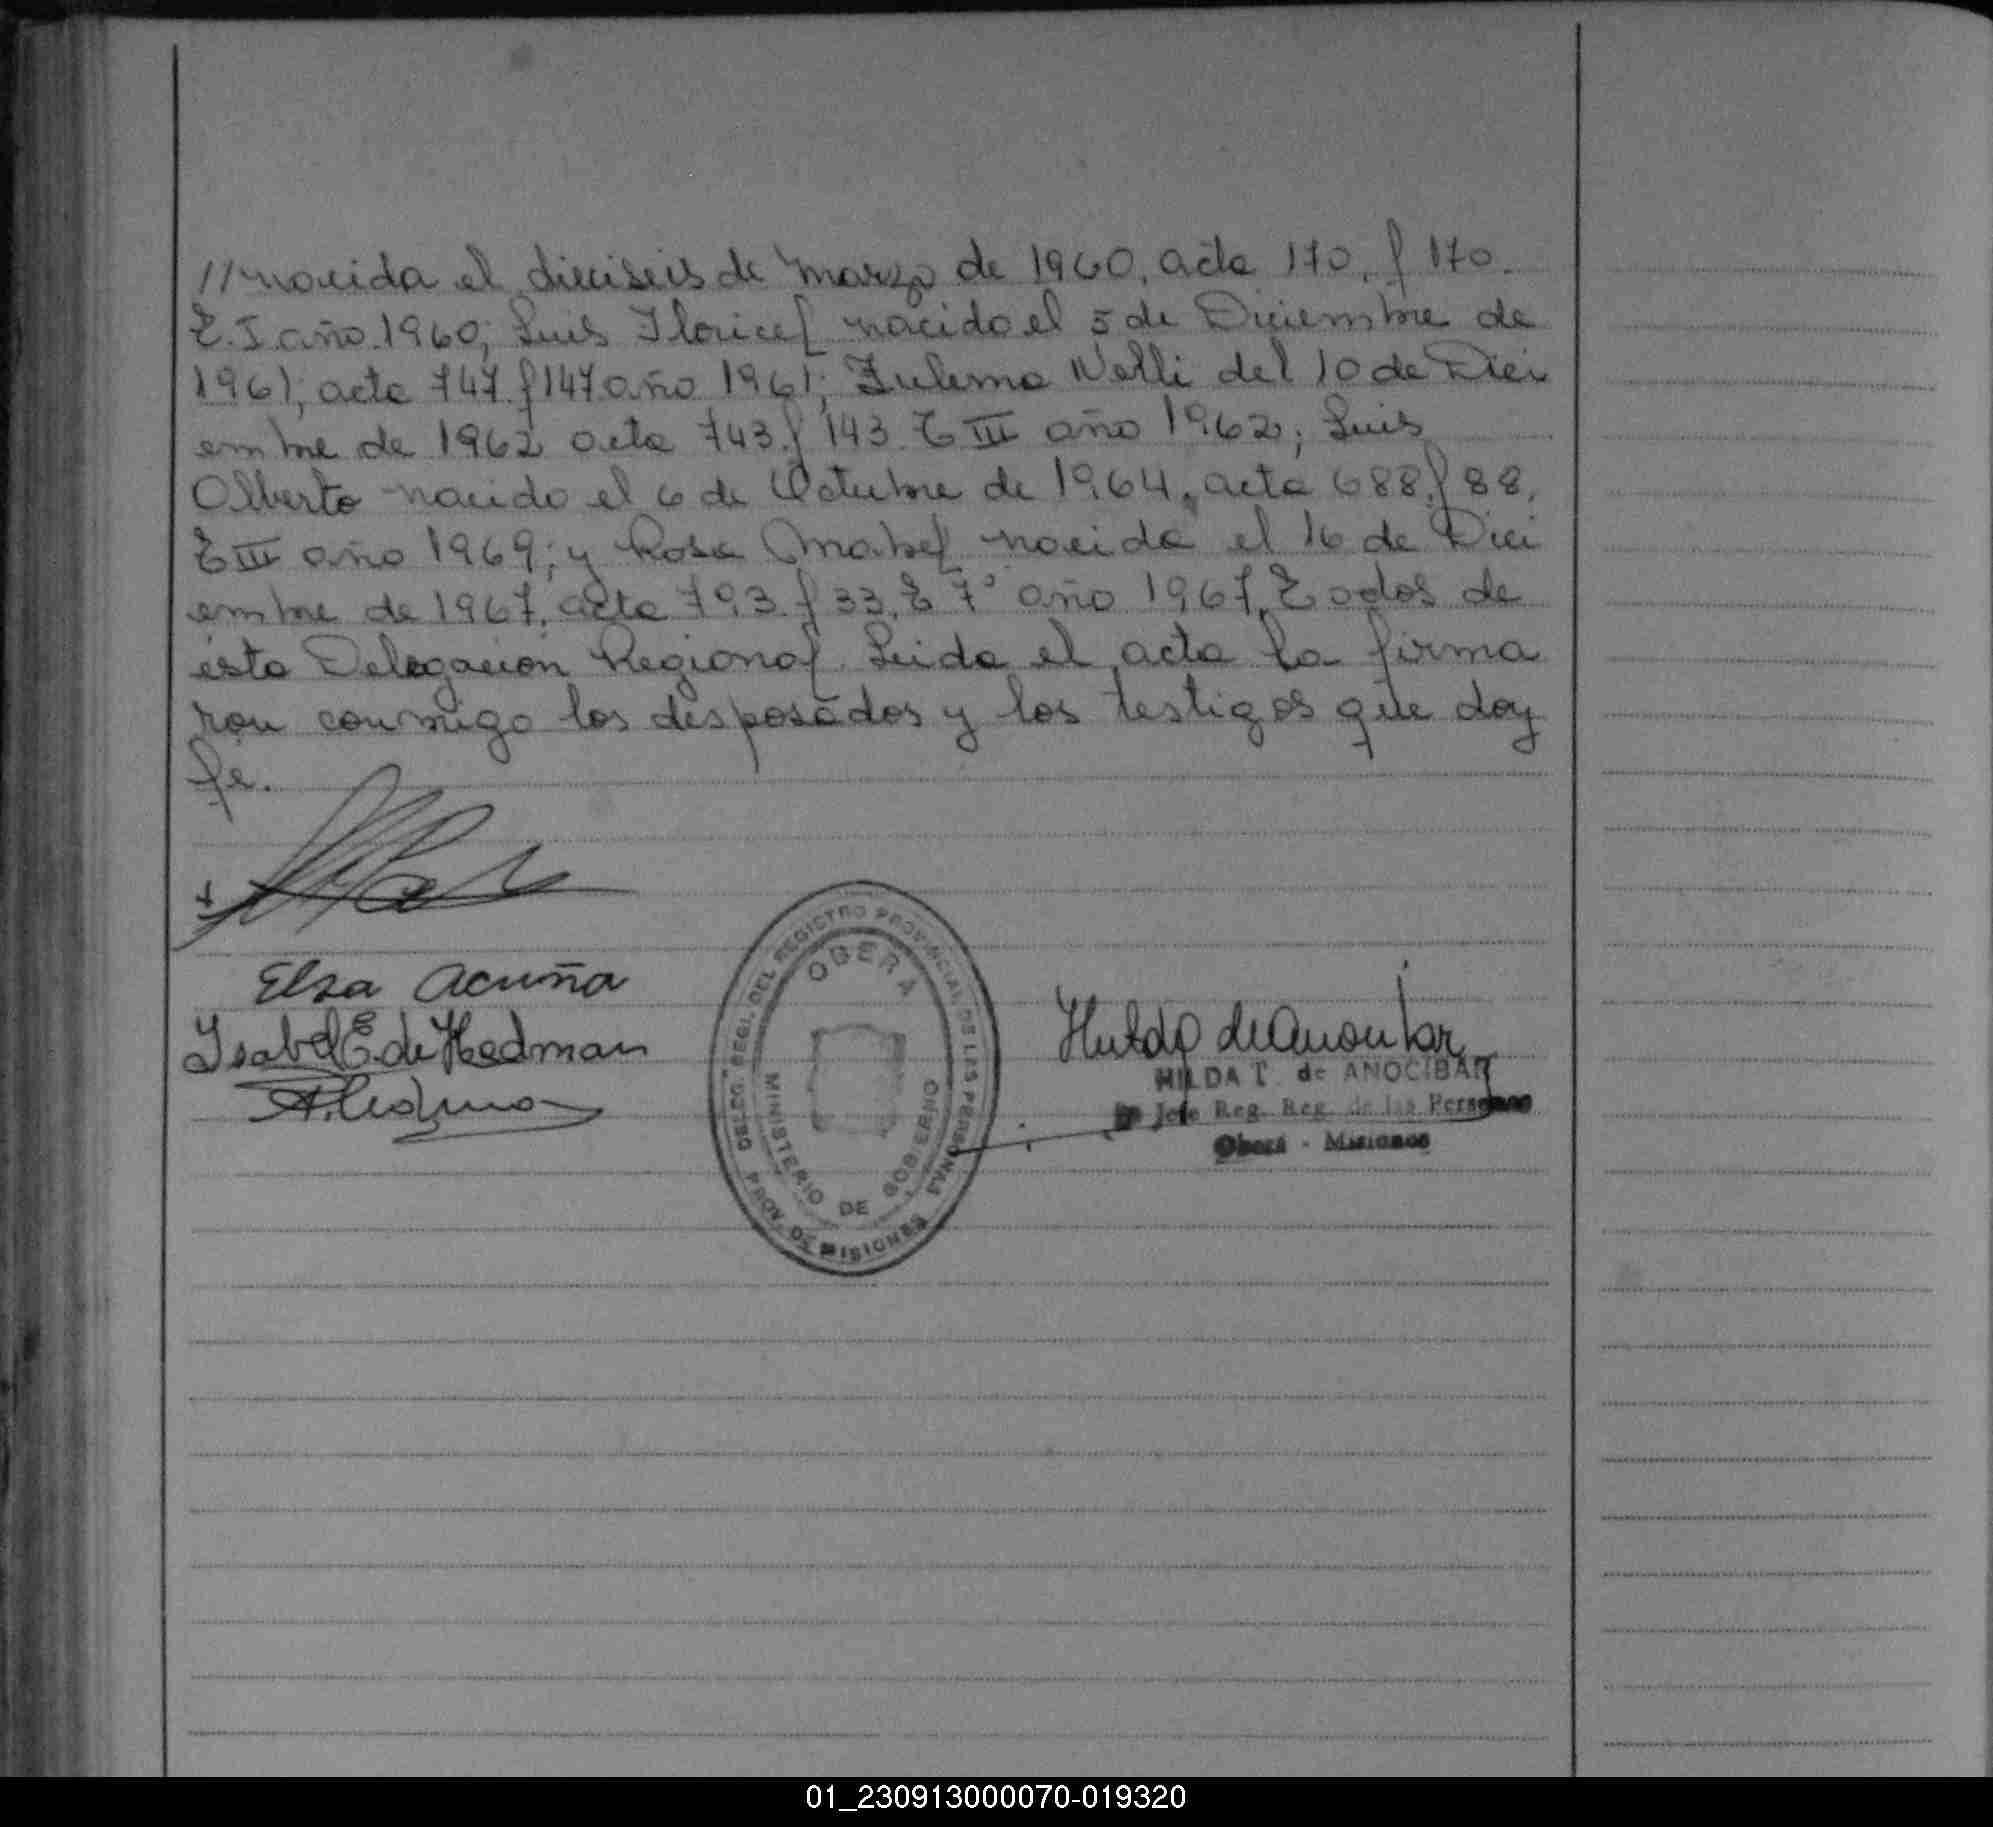 //nacida el dieciseis de Marzo de 1960, acta 170, f 170.
T. I año 1960; Luis Floricel nacido el 5 de Diciembre de
1961; acta 747 f 147 año 1961; Zulema Nelli del 10 de Dici
embre de 1962 acta 743 f 143 T III año 1962; Luis
Alberto nacido el 6 de Octubre de 1964, acta 688 f 88,
T III año 1969; y Rosa Mabel nacida el 16 de Dici
embre de 1967, acta 793 f 33, T 7° año 1967, Todos de
ésta Delegación Regional. Leida el acta la firma
ron conmigo los desposados y los testigos que doy
fé.
Elsa Acuña
Isabel E. de Hedman
DELEG. REGI. DEL REGISTRO PROVINCIAL DE LAS PERSONAS
OBERA
MINISTERIO DE GOBIERNO
PROV. DE MISIONES
Hilda de Anocibar
HILDA T. de ANOCIBAR
Jefe Reg. Reg. de las Personas
Oberá - Misiones
01_230913000070-019320